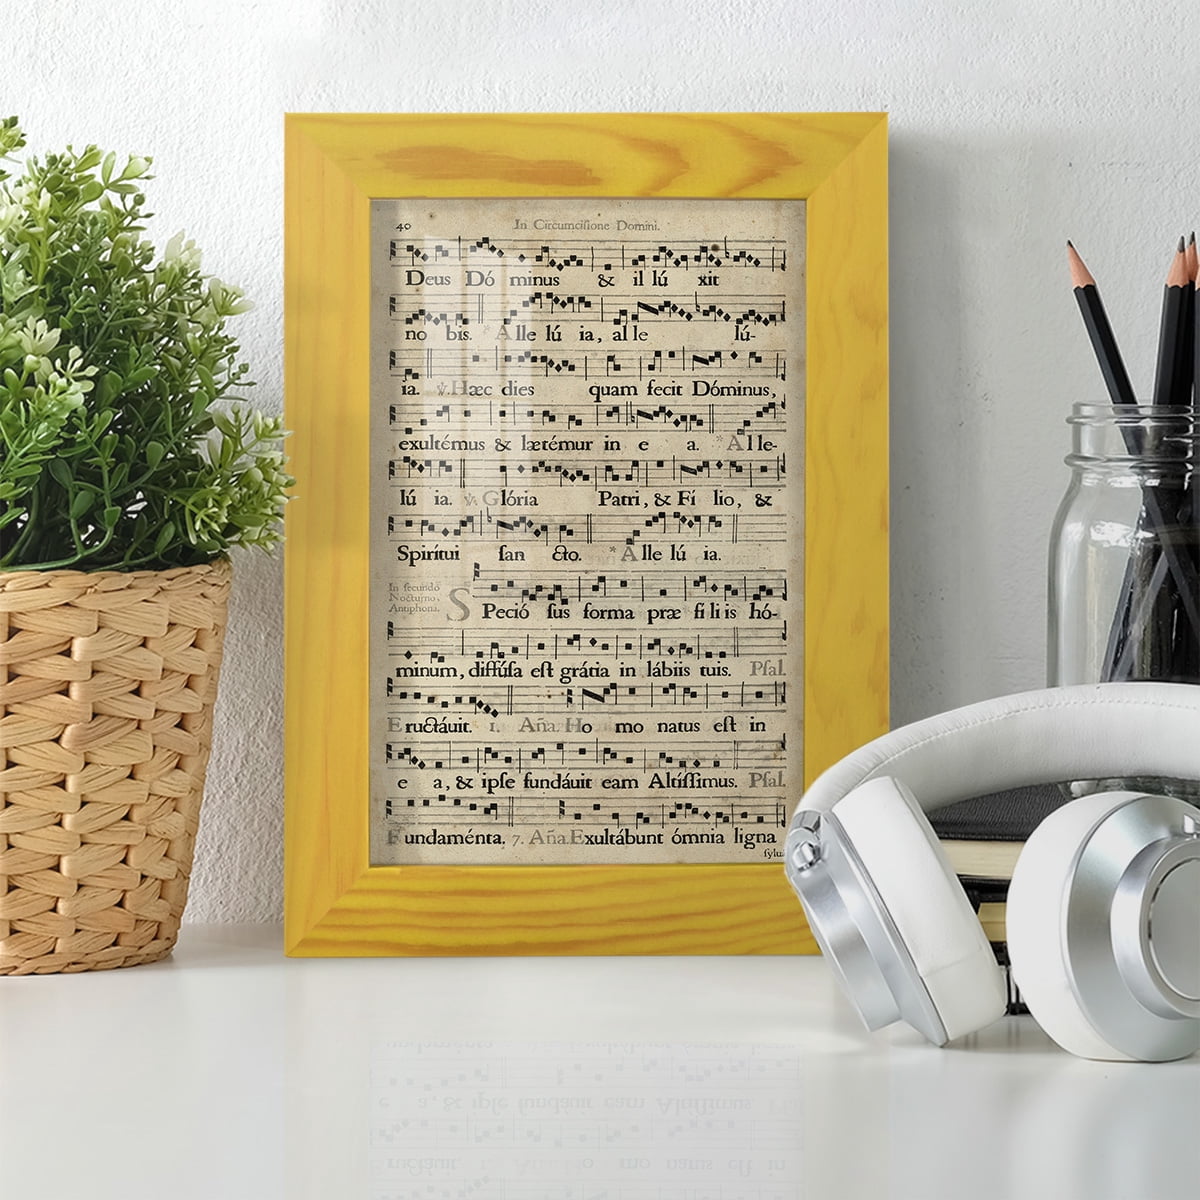 40 In Circumciſione Domini.
Deus Dó minus & il lú xit
no bis. * Alle lú ia, al le lú-
ia. ℣. Hæc dies quam fecit Dóminus,
exultémus & lætémur in e a. * Alle-
lú ia. ℣. Glória Patri, & Fí lio, &
Spirítui ſan cto. * Alle lú ia.
In ſecundo
Nocturno,
Antiphona.
SPeció ſus forma præ fi li is hó-
minum, diffúſa eſt grátia in lábiis tuis. Pſal.
Eructáuit. 1. Aña. Ho mo natus eſt in
e a, & ipſe fundáuit eam Altíſſimus. Pſal.
Fundaménta. 7. Aña. Exultábunt ómnia ligna
ſylu